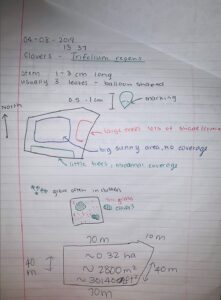 04-03-2019
13 37
Clovers - Trifolium repens
stem 1-3 cm long
usually 3 leaves - balloon shaped
0.5-1cm
marking
North
large trees lots of shade
big sunny area, no coverage
little trees, minimal coverage
grow often in clusters
grass
clovers
70m
10m
40
m
~ 0.32 ha
~ 2800m²
40m
70m